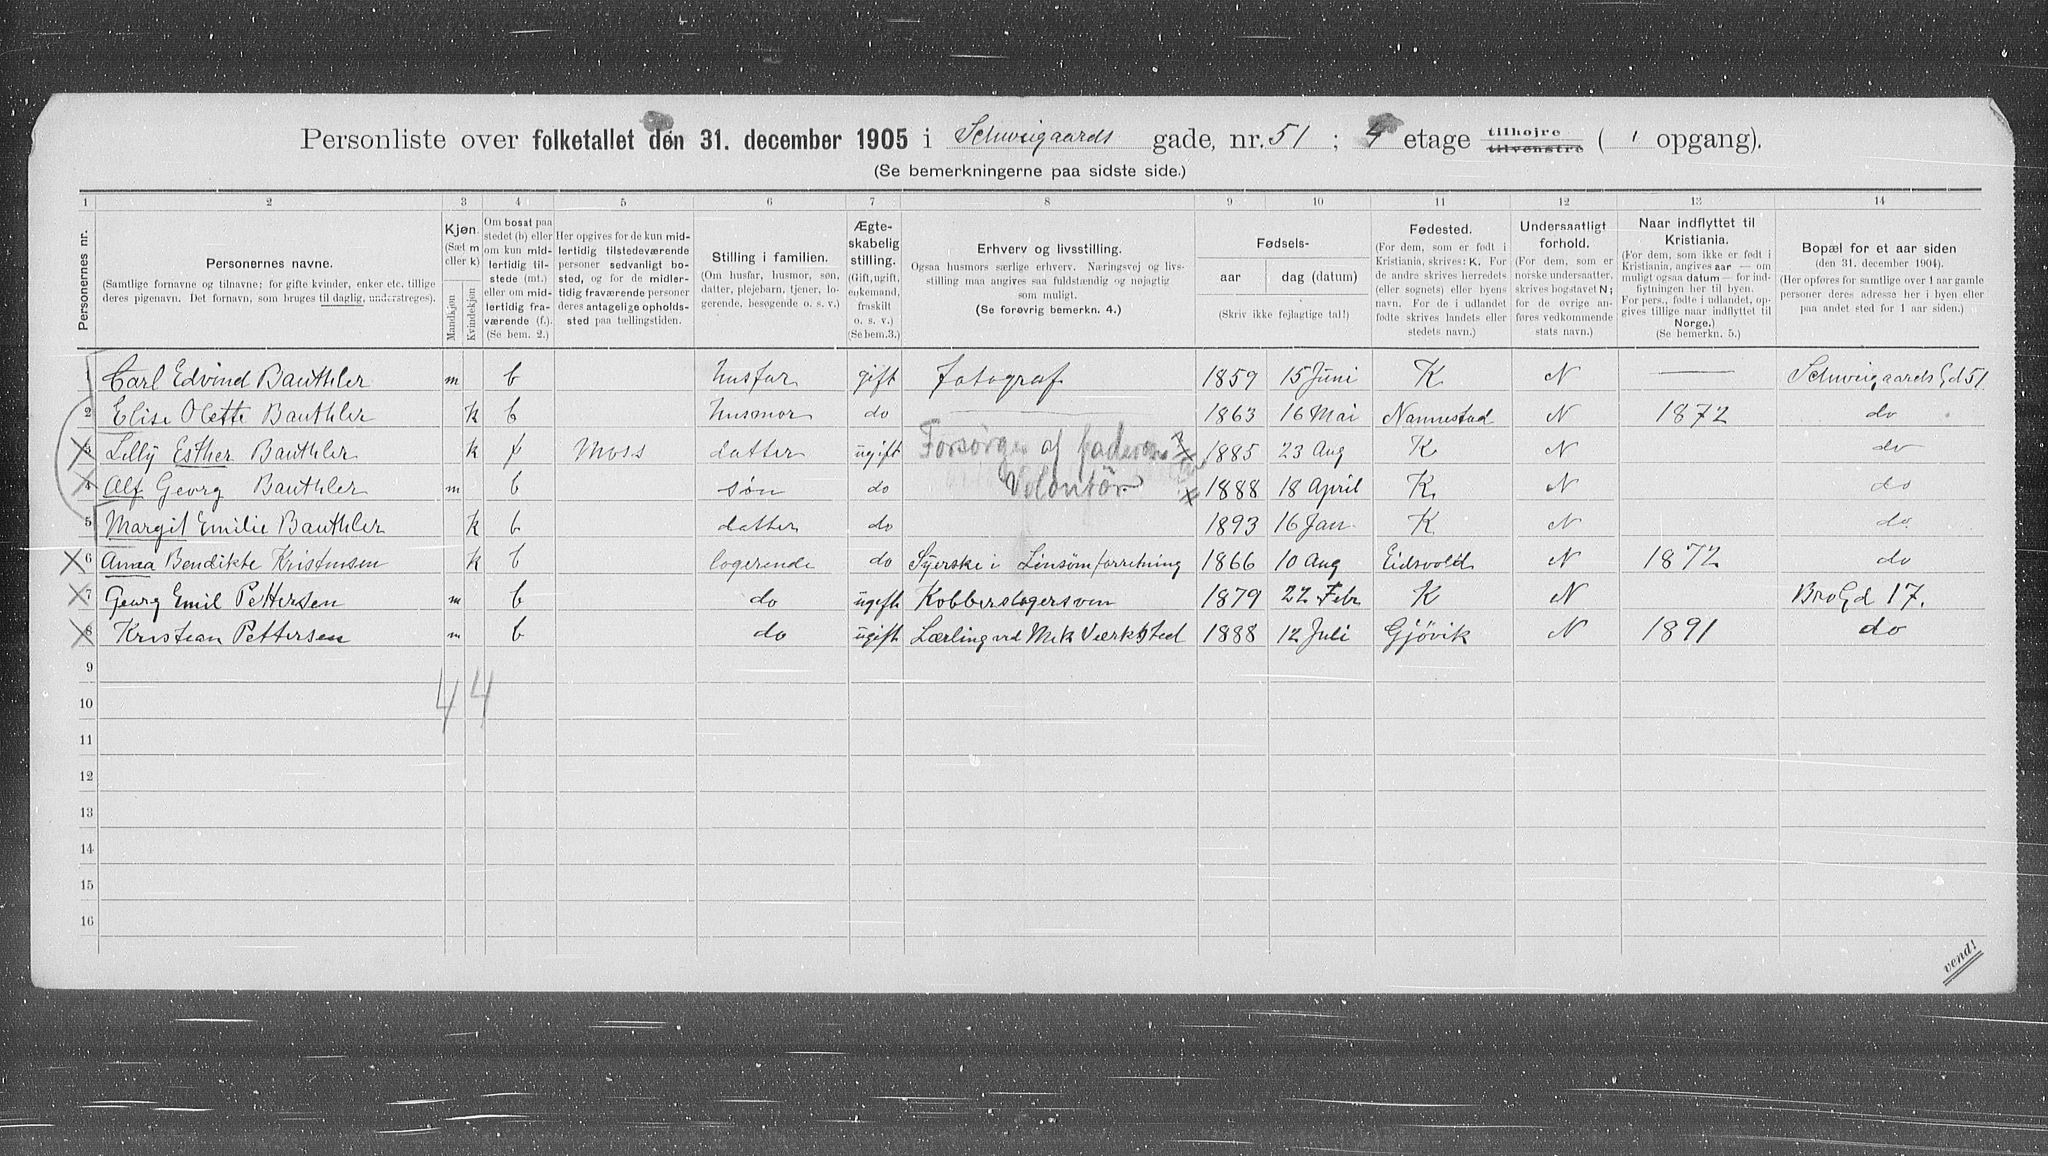 Personliste over folketallet den 31. december 1905 i Schweigaards gade, nr. 51 ; 4 etage tilhøjre tilvenstre ( 1 opgang).
(Se bemerkningerne paa sidste side.)
1 2 3 4 5 6 7 8 9 10 11 12 13 14
Personernes nr.
Personernes navne.
(Samtlige fornavne og tilnavne; for gifte kvinder, enker etc. tillige deres pigenavn. Det fornavn, som bruges til daglig, understreges).
Kjøn.
(Sæt m eller k)
Mandkjøn Kvindekjøn
Om bosat paa stedet (b) eller om kun midlertidig tilstede (mt.) eller om midlertidig fraværende (f.). (Se bem. 2.)
Her opgives for de kun midlertidig tilstedeværende personer sedvanligt bosted, og for de midlertidig fraværende personer deres antagelige opholdssted paa tællingstiden.
Stilling i familien.
(Om husfar, husmor, søn, datter, plejebarn, tjener, logerende, besøgende o. s. v.)
Ægteskabelig stilling.
(Gift, ugift, enkemand, fraskilt o. s. v.)
(Se bem.3.)
Erhverv og livsstilling.
Ogsaa husmors særlige erhverv. Næringsvej og livsstilling maa angives saa fuldstændig og nøjagtig som muligt.
(Se forøvrig bemerkn. 4.)
Fødsels-
aar dag (datum)
(Skriv ikke fejlagtige tal!)
Fødested.
(For dem, som er født i Kristiania, skrives: K. For de andre skrives herredets (eller sognets) eller byens navn. For de i udlandet fødte skrives landets eller stedets navn.)
Undersaatligt forhold.
(For dem, som er norske undersaatter, skrives bogstavet N; for de øvrige anføres vedkommende stats navn.)
Naar indflyttet til Kristiania.
(For dem, som ikke er født i Kristiania, angives aar — om muligt ogsaa datum — for indflytningen her til byen. For pers., fødte i udlandet, opgives tillige naar indflyttet til Norge.)
(Se bemerkn. 5.)
Bopæl for et aar siden
(den 31. december 1904).
(Her opføres for samtlige over 1 aar gamle personer deres adresse her i byen eller paa andet sted for 1 aar siden.)
1 Carl Edvind Bauthler m b husfar gift fotograf 1859 15 Juni K N — Schweigaards Gd 51
2 Elise Olette Bauthler k b husmor do 1863 16 Mai Nannestad N 1872 do
3 Lilly Esther Bauthler k f Moss datter ugift Forsørges af faderen 1885 23 Aug K N do
4 Alf Georg Bauthler m b søn do Volontør 1888 18 April K N do
5 Margit Emilie Bauthler k b datter do 1893 16 Jan K N do
6 Anna Bendikte Kristensen k b logerende do Syerske i Linsømforretning 1866 10 Aug Eidsvold N 1872 do
7 Georg Emil Pettersen m b do ugift Kobberslagersven 1879 22 Febr K N Bro Gd 17.
8 Kristian Pettersen m b do ugift Lærling ved Mek Værksted 1888 12 Juli Gjøvik N 1891 do
9
4 4
10
11
12
13
14
15
16
vend!